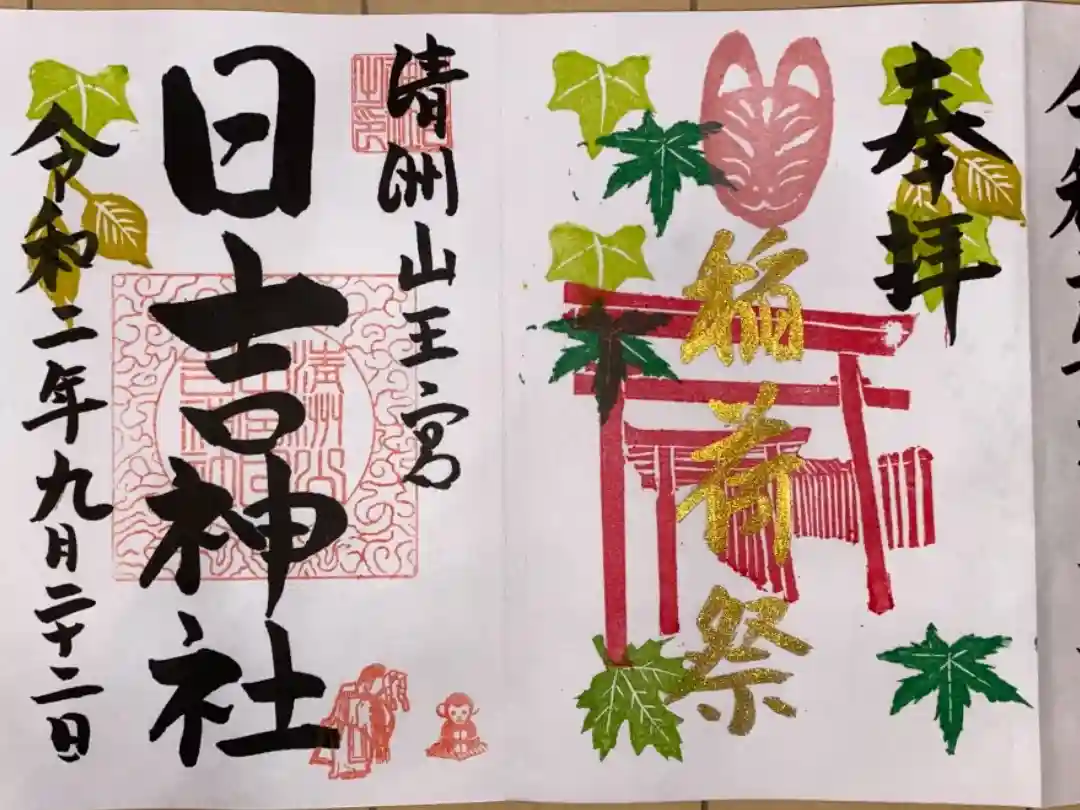 奉拝
稲荷祭
清洲山王宮
日吉神社
令和二年九月二十二日